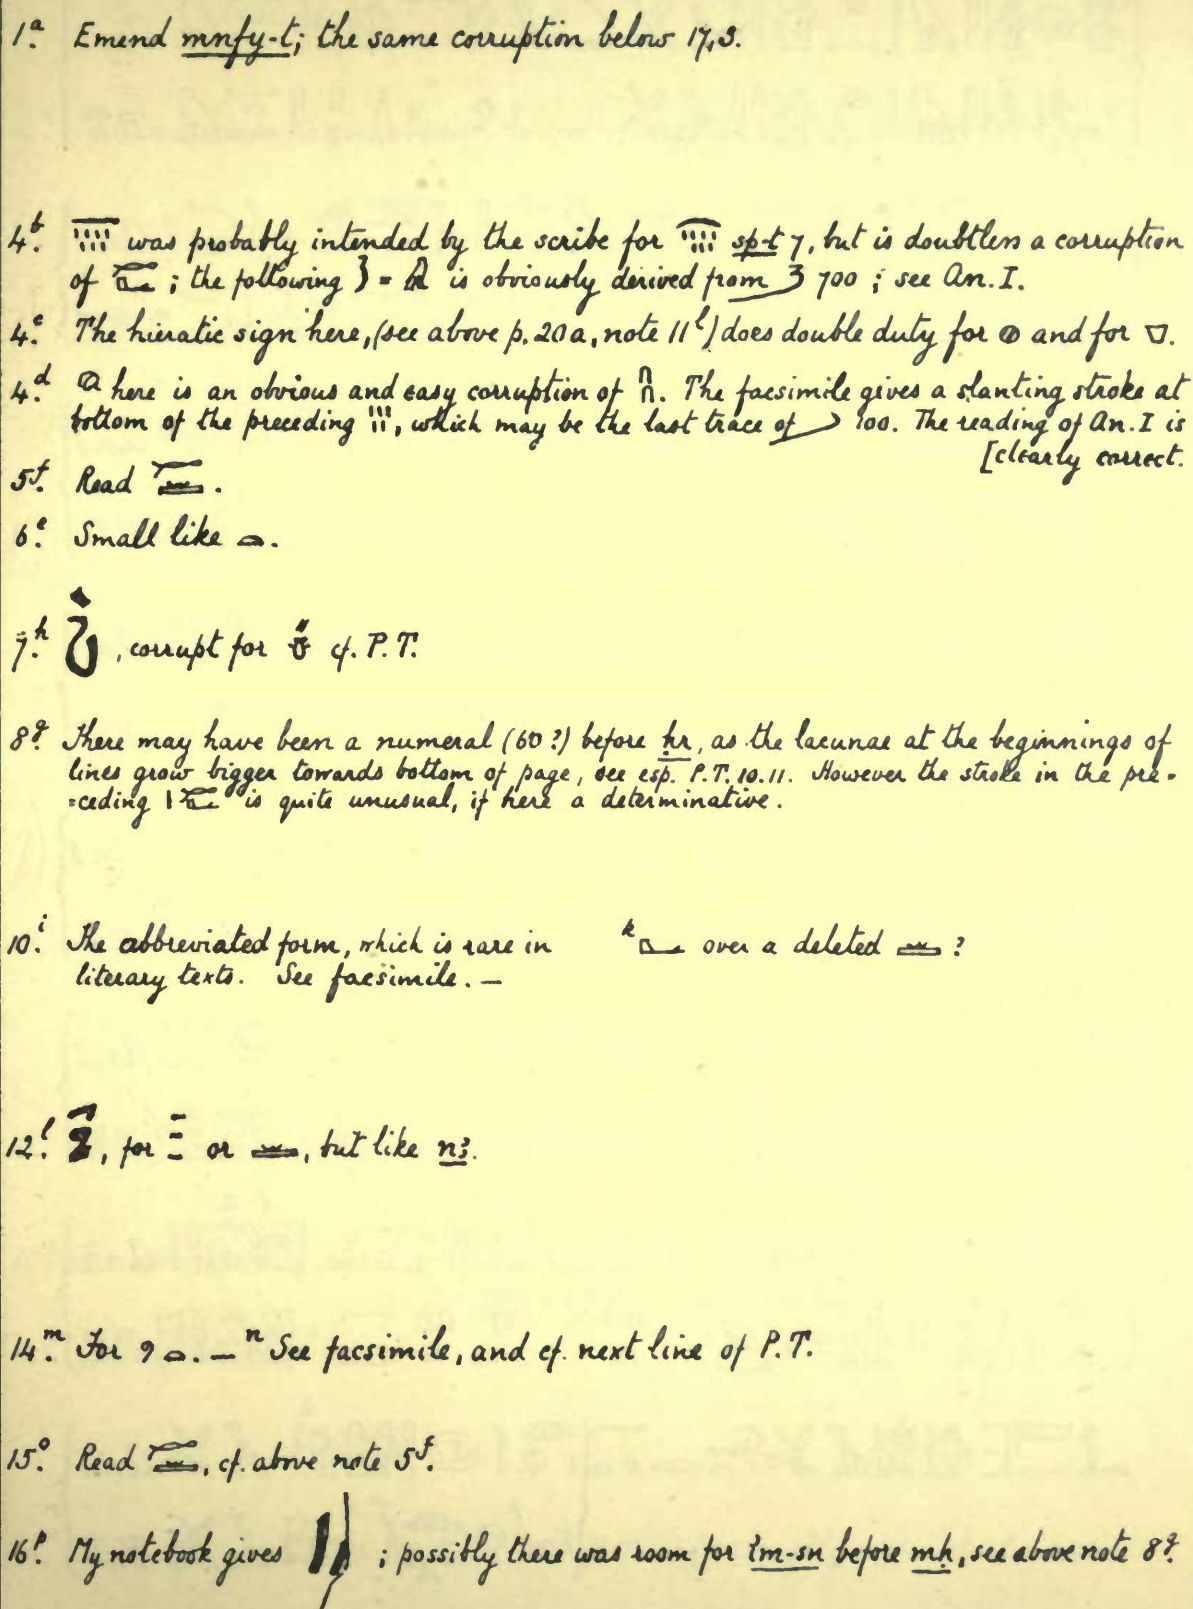 1ᵃ. Emend mnfy-t; the same corruption below 17,3.
4ᵇ. was probably intended by the scribe for sp-t 7, but is doubtless a corruption
of ; the following = is obviously derived from 700 ; see An. I.
4ᶜ. The hieratic sign here, (see above p. 20a, note 11ˡ) does double duty for and for .
4ᵈ. here is an obvious and easy corruption of . The facsimile gives a slanting stroke at
bottom of the preceding , which may be the last trace of 100. The reading of An. I is
[clearly correct.
5ᶠ. Read .
6ᵉ. Small like .
7ʰ. , corrupt for cf. P.T.
8ᵍ. There may have been a numeral (60?) before ḥr, as the lacunae at the beginnings of
lines grow bigger towards bottom of page, see esp. P.T. 10.11. However the stroke in the pre-
=ceding is quite unusual, if here a determinative.
10ⁱ. The abbreviated form, which is rare in
literary texts. See facsimile. –
ᵏ over a deleted ?
12ˡ. , for or , but like nꜣ.
14ᵐ. For 9 . – ⁿ See facsimile, and cf. next line of P.T.
15ᵒ. Read , cf. above note 5ᶠ.
16ᵖ. My notebook gives ; possibly there was room for ỉm-sn before mḥ, see above note 8ᵍ.